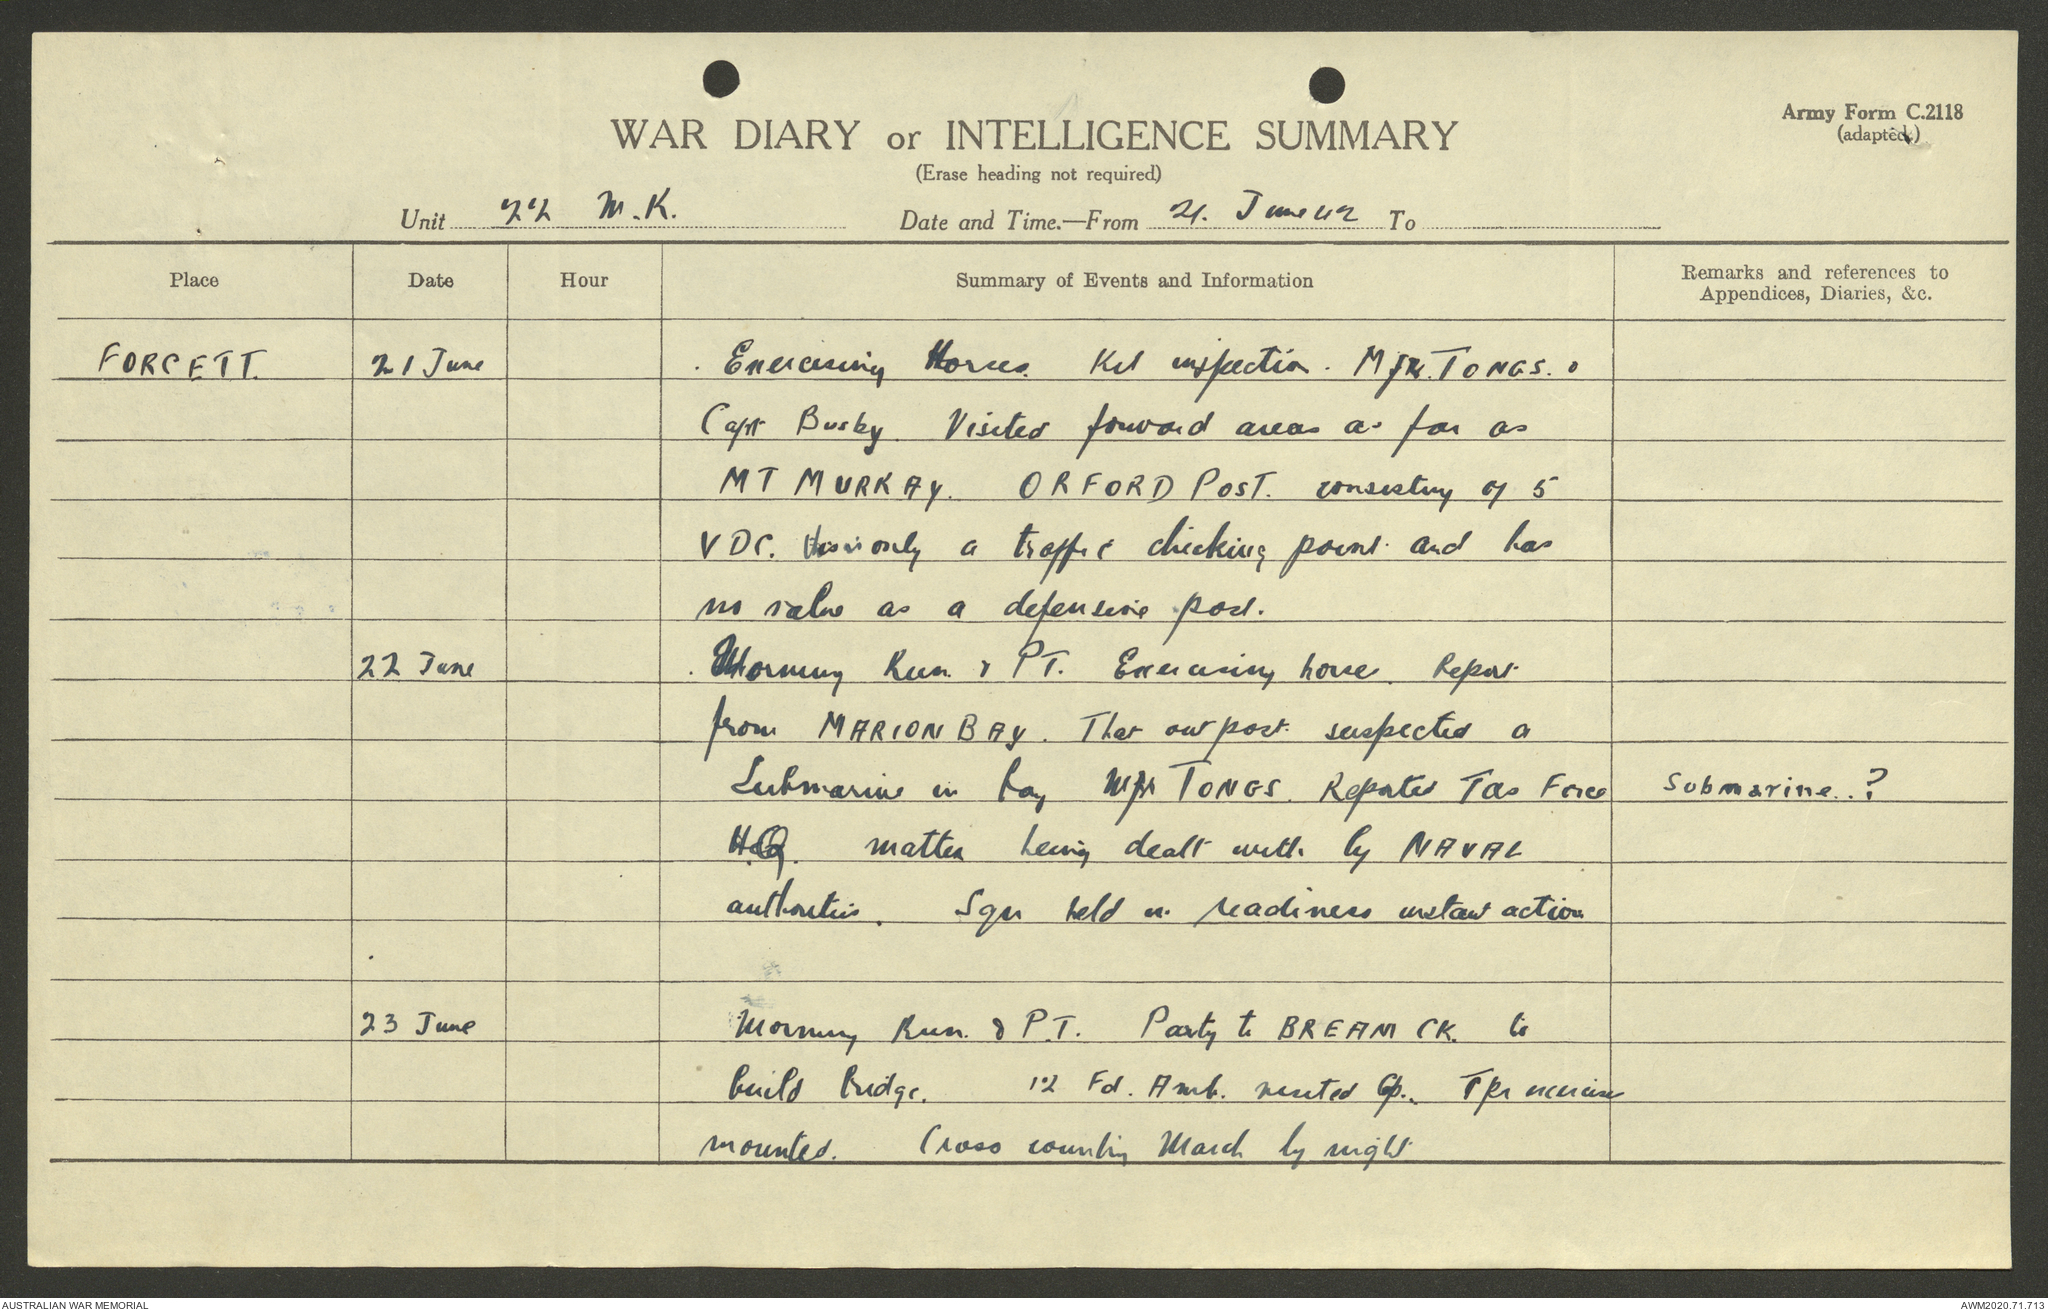 Army Form C.2118
(adapted.)
WAR DIARY or INTELLIGENCE SUMMARY
(Erase heading not required)
Unit 22 M.K. Date and Time.—From 21. June 42 To
Place Date Hour Summary of Events and Information Remarks and references to
Appendices, Diaries, &c.
FORCETT. 21 June Exercising Horses. Kit inspection. Mjr. TONGS. &
Capt Busby. Visited forward areas as far as
MT MURRAY. ORFORD POST. consisting of 5
VDC. only a traffic checking point and has
no value as a defensive post.
22 June Morning Run & PT. Exercising horse. Report
from MARION BAY. That outpost suspected a
Submarine in bay Mjr TONGS. Reported Tas Force Submarine..?
H.Q. matter being dealt with by NAVAL
authorities. Sqn held in readiness instant action
23 June Morning Run. & P.T. Party to BREAM CK. to
build bridge. 12 Fd. Amb. visited Tpr exercise
mounted. Cross country March by night
AUSTRALIAN WAR MEMORIAL AWM2020.71.713